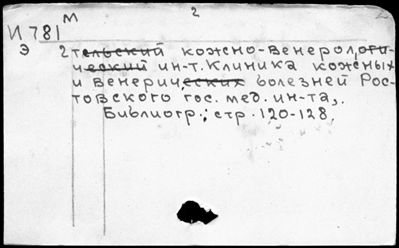 М 2
И 781
Э 2 тельский кожно-венерологи-
ческий ин-т. Клиника кожных
и венерических болезней Рос-
товского гос. мед. ин-та,.
Библиогр.: стр. 120-128.